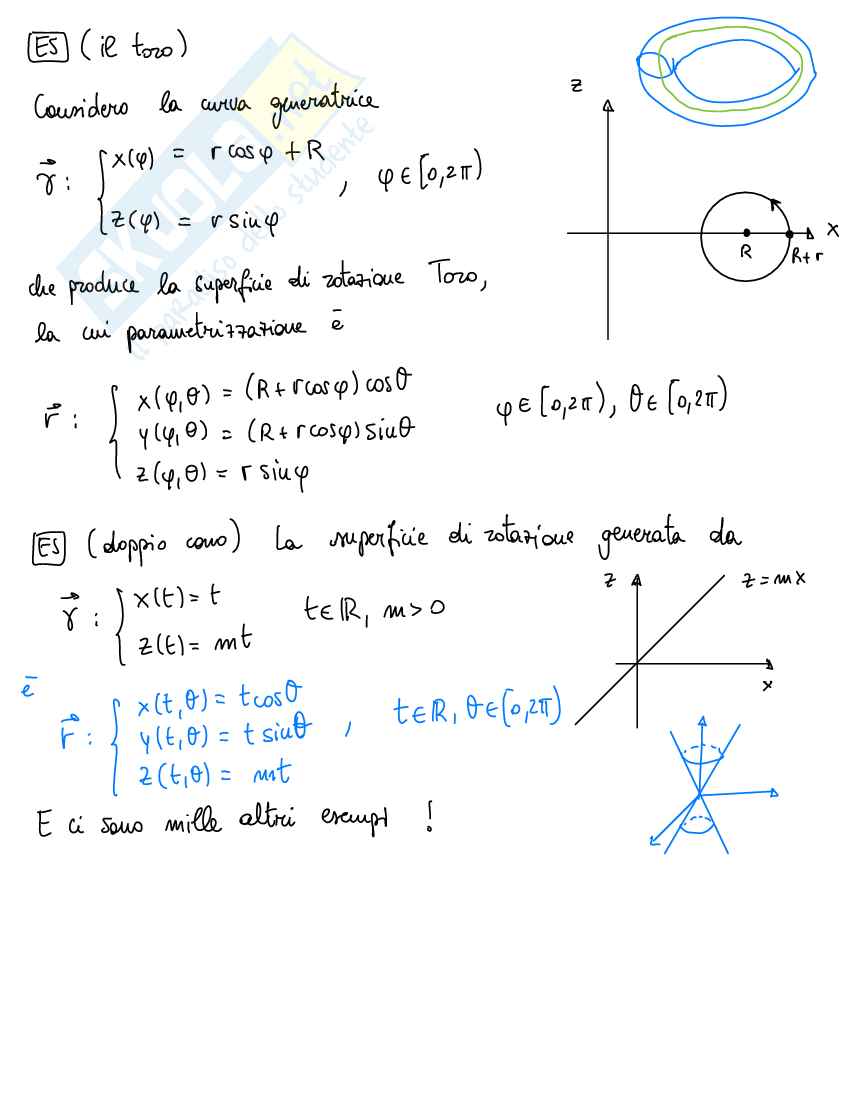 ES (il toro)
Considero la curva generatrice
γ⃗ : { x(φ) = r cosφ + R
z(φ) = r sinφ , φ ∈ [0,2π)
z
x
R
R+r
che produce la superficie di rotazione Toro,
la cui parametrizzazione è
r⃗ : { x(φ,θ) = (R + r cosφ) cosθ
y(φ,θ) = (R + r cosφ) sinθ
z(φ,θ) = r sinφ
φ ∈ [0,2π), θ ∈ [0,2π)
ES (doppio cono) La superficie di rotazione generata da
γ⃗ : { x(t) = t
z(t) = mt
t ∈ ℝ, m > 0
z
z = mx
x
è
r⃗ : { x(t,θ) = t cosθ
y(t,θ) = t sinθ
z(t,θ) = mt
, t ∈ ℝ, θ ∈ [0,2π)
E ci sono mille altri esempi !
SKUOLA.net
il paradiso dello studente